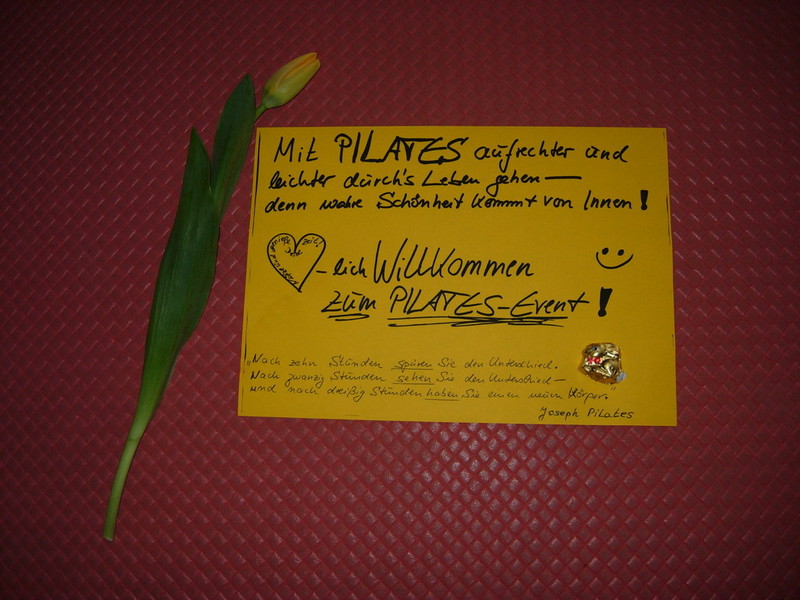 Mit PILATES aufrechter und
leichter durch's Leben gehen —
denn wahre Schönheit kommt von Innen!
-lich Willkommen
zum PILATES-Event!
"Nach zehn Stunden spüren Sie den Unterschied.
Nach zwanzig Stunden sehen Sie den Unterschied —
und nach dreißig Stunden haben Sie einen neuen Körper."
Joseph Pilates